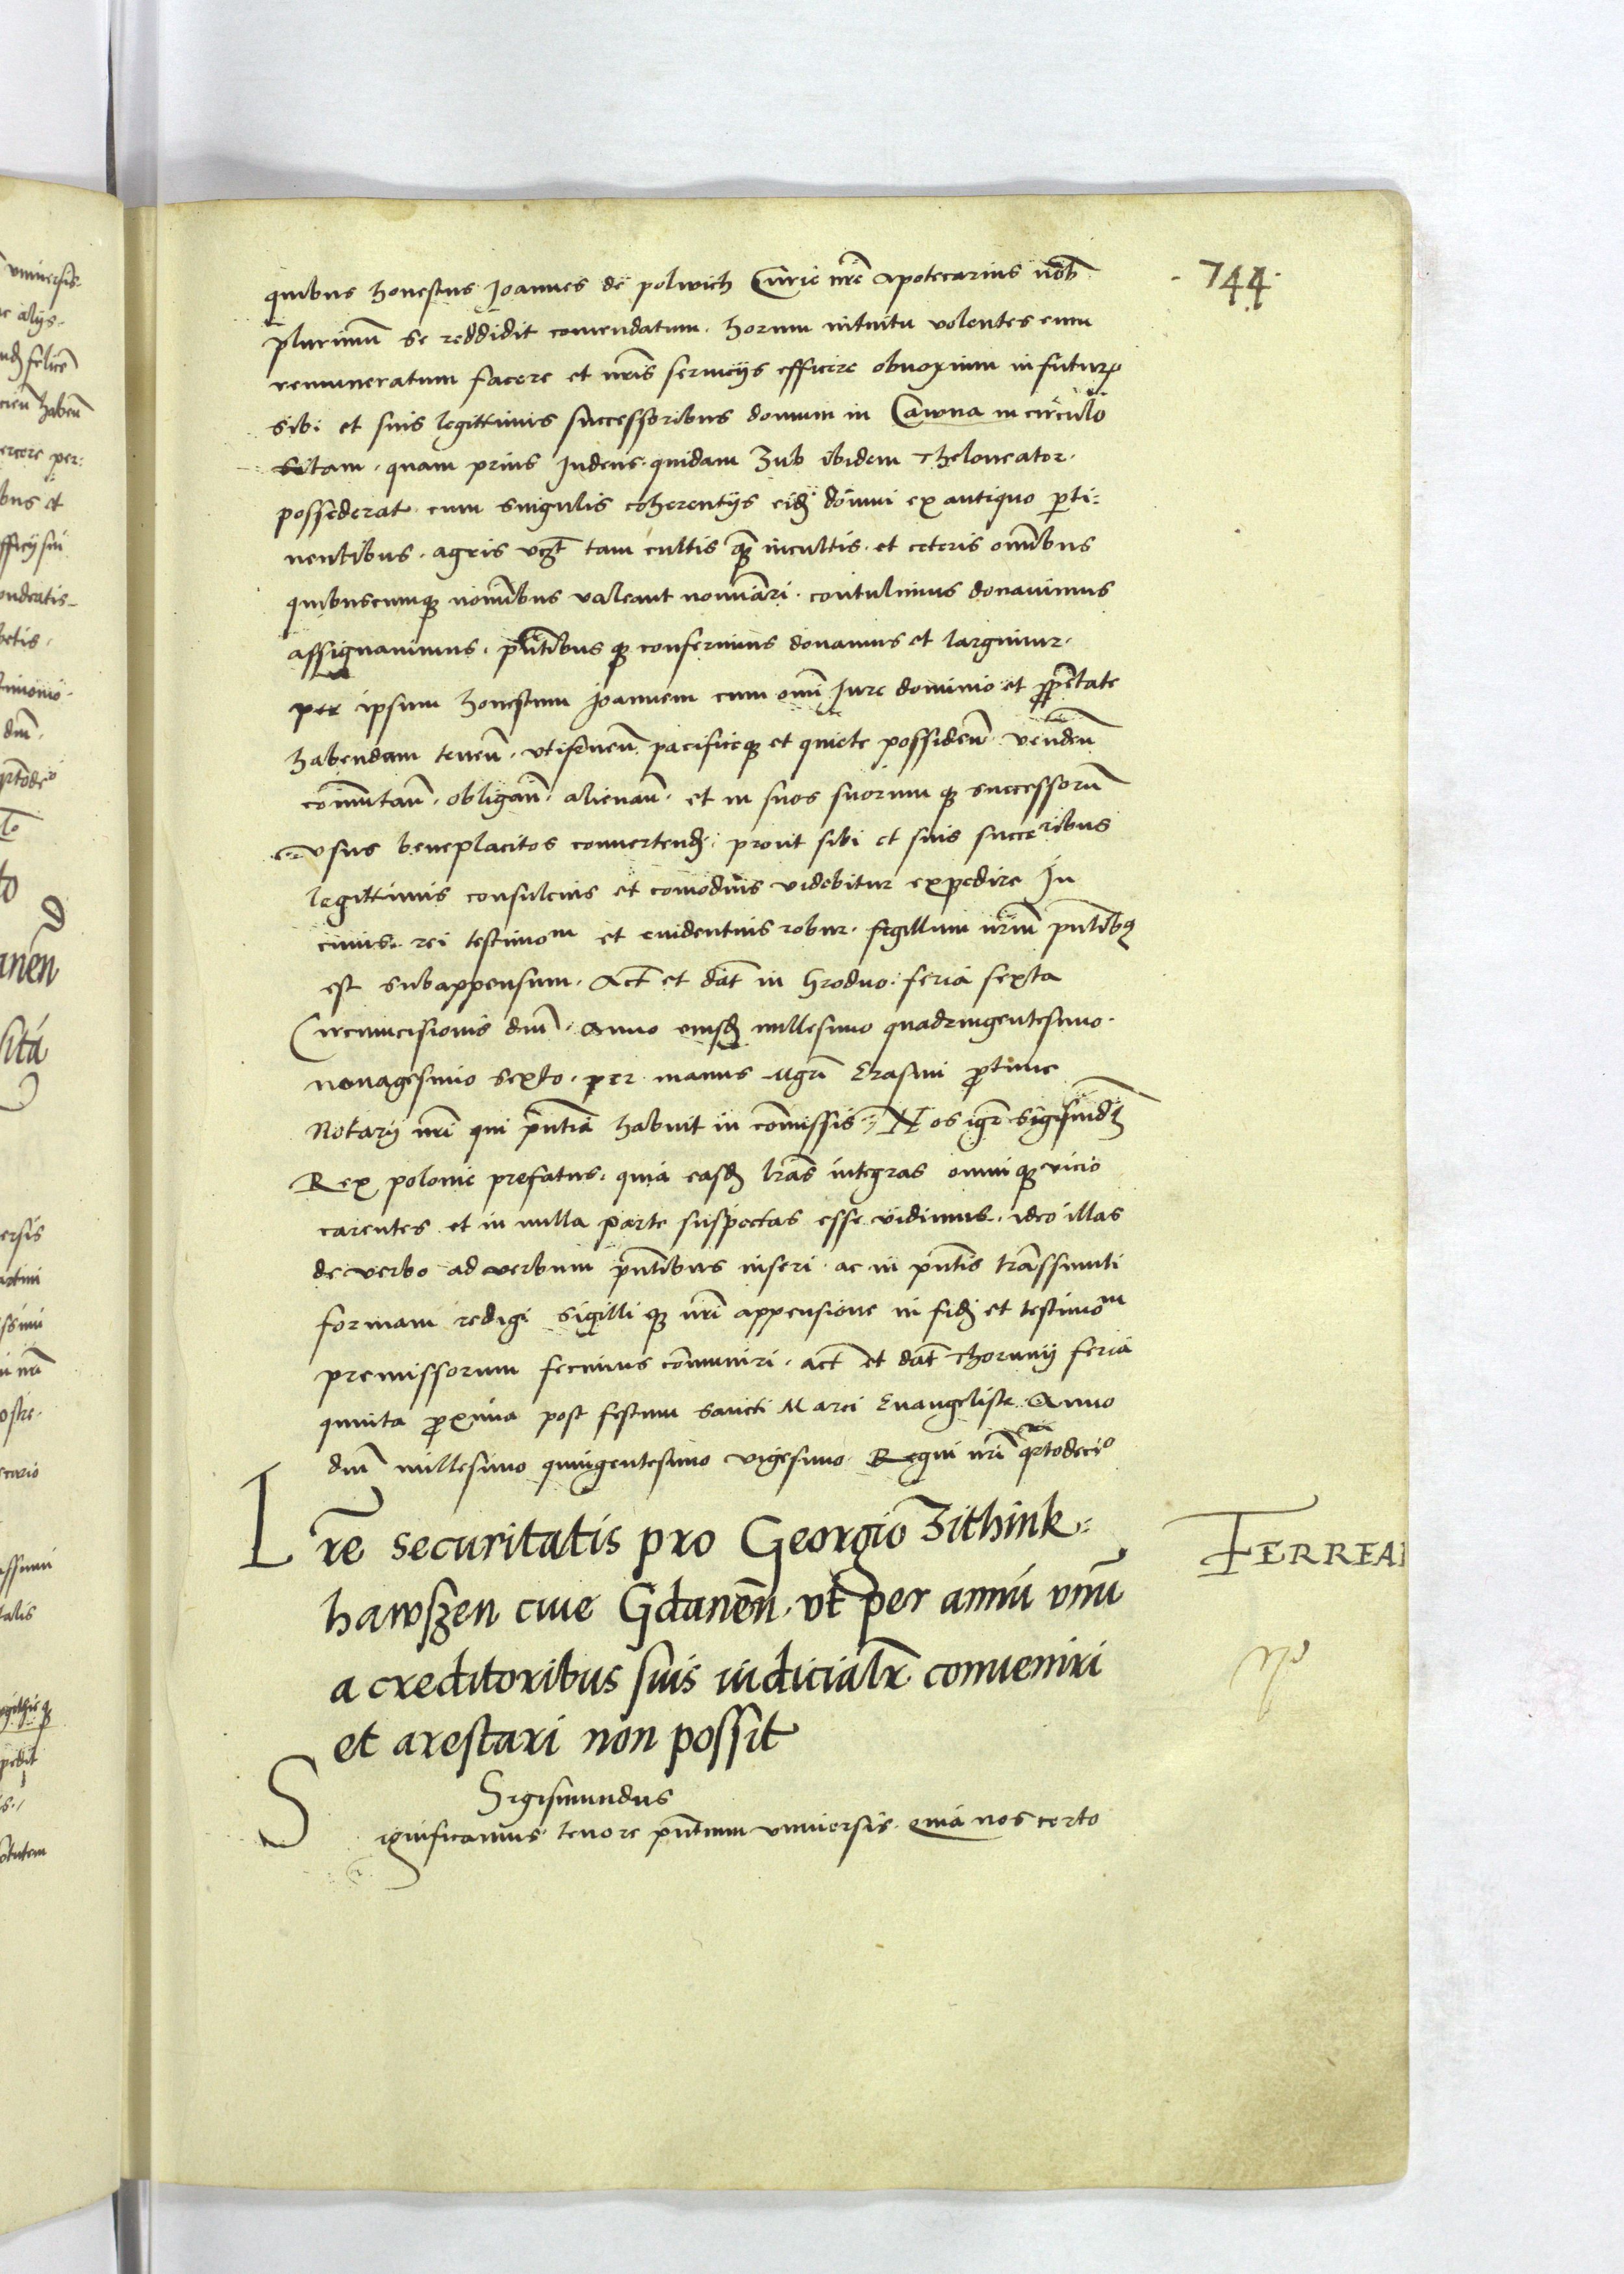 744
quibus honestus Joannes de polwich Curie nrē Apotecarius nob̄
plurimū se reddidit comendatum. horum intuitu volentes eum
remuneratum facere et nrīs seruicijs efficere obnoxium in futurū
sibi et suis legittimis successoribus domum in Cawna in circulo
sitam. quam prius Judeus quidam Zub ibidem Theloneator.
possederat cum singulis coherentijs eidē domui ex antiquo perti-
nentibus. agris vcȝt tam cultis quā incultis. et ceteris omībus
quibuscumque nomībus valeant nomīari. contulimus donauimus
assignauimus. pn̄tibus que conferimus donamus et largimur.
per ipsum honestum Joannem cum omī Jure dominio et proprietate
habendam tenen̄. vtifruen̄ pacificeque et quiete possiden̄ venden̄
commutan̄. obligan̄. alienan̄. et in suos suorum que successorū
vsus beneplacitos conuertendē. prout sibi et suis succeribus
legittimis consulcius et comodius videbitur expedire In
cuius rei testimom et euidentius robur. sigillum nrm̄ pn̄tibꝫ
est subappensum. Act̄ et dat̄ in hrodno. feria sexta
Circumcisionis dnī. Anno eiusdē millesimo quadringentesimo.
nonagesimo sexto. per manus Mgrī Erasmi protunc
Notarij nrī qui pn̄tia habuit in commissis. Nos igr̄ Sigismūdꝫ
Rex polonie prefatus. quia easdē lrās integras omnique vicio
carentes et in nulla parte suspectas esse vidimus. ideo illas
de verbo ad verbum pn̄tibus inseri. ac in pn̄tis transsumti
formam redigi sigilli que nrī appensione in fidē et testimom
premissorum fecimus communiri. act̄ et dat̄ Thorunij feria
quinta proxima post festum sancti Marci Euangeliste. Anno
dnī millesimo quingentesimo vigesimo. Regni nrī qrtodecio
Lrē securitatis pro Georgio Zithink-
FERREA
hawszen ciue Gdanen̄. vt per annū vnū
a creditoribus suis iudicialr̄ conueniri
et arestari non possit
Sigismundus
Significamus tenore pn̄tium vniuersis. quia nos certo